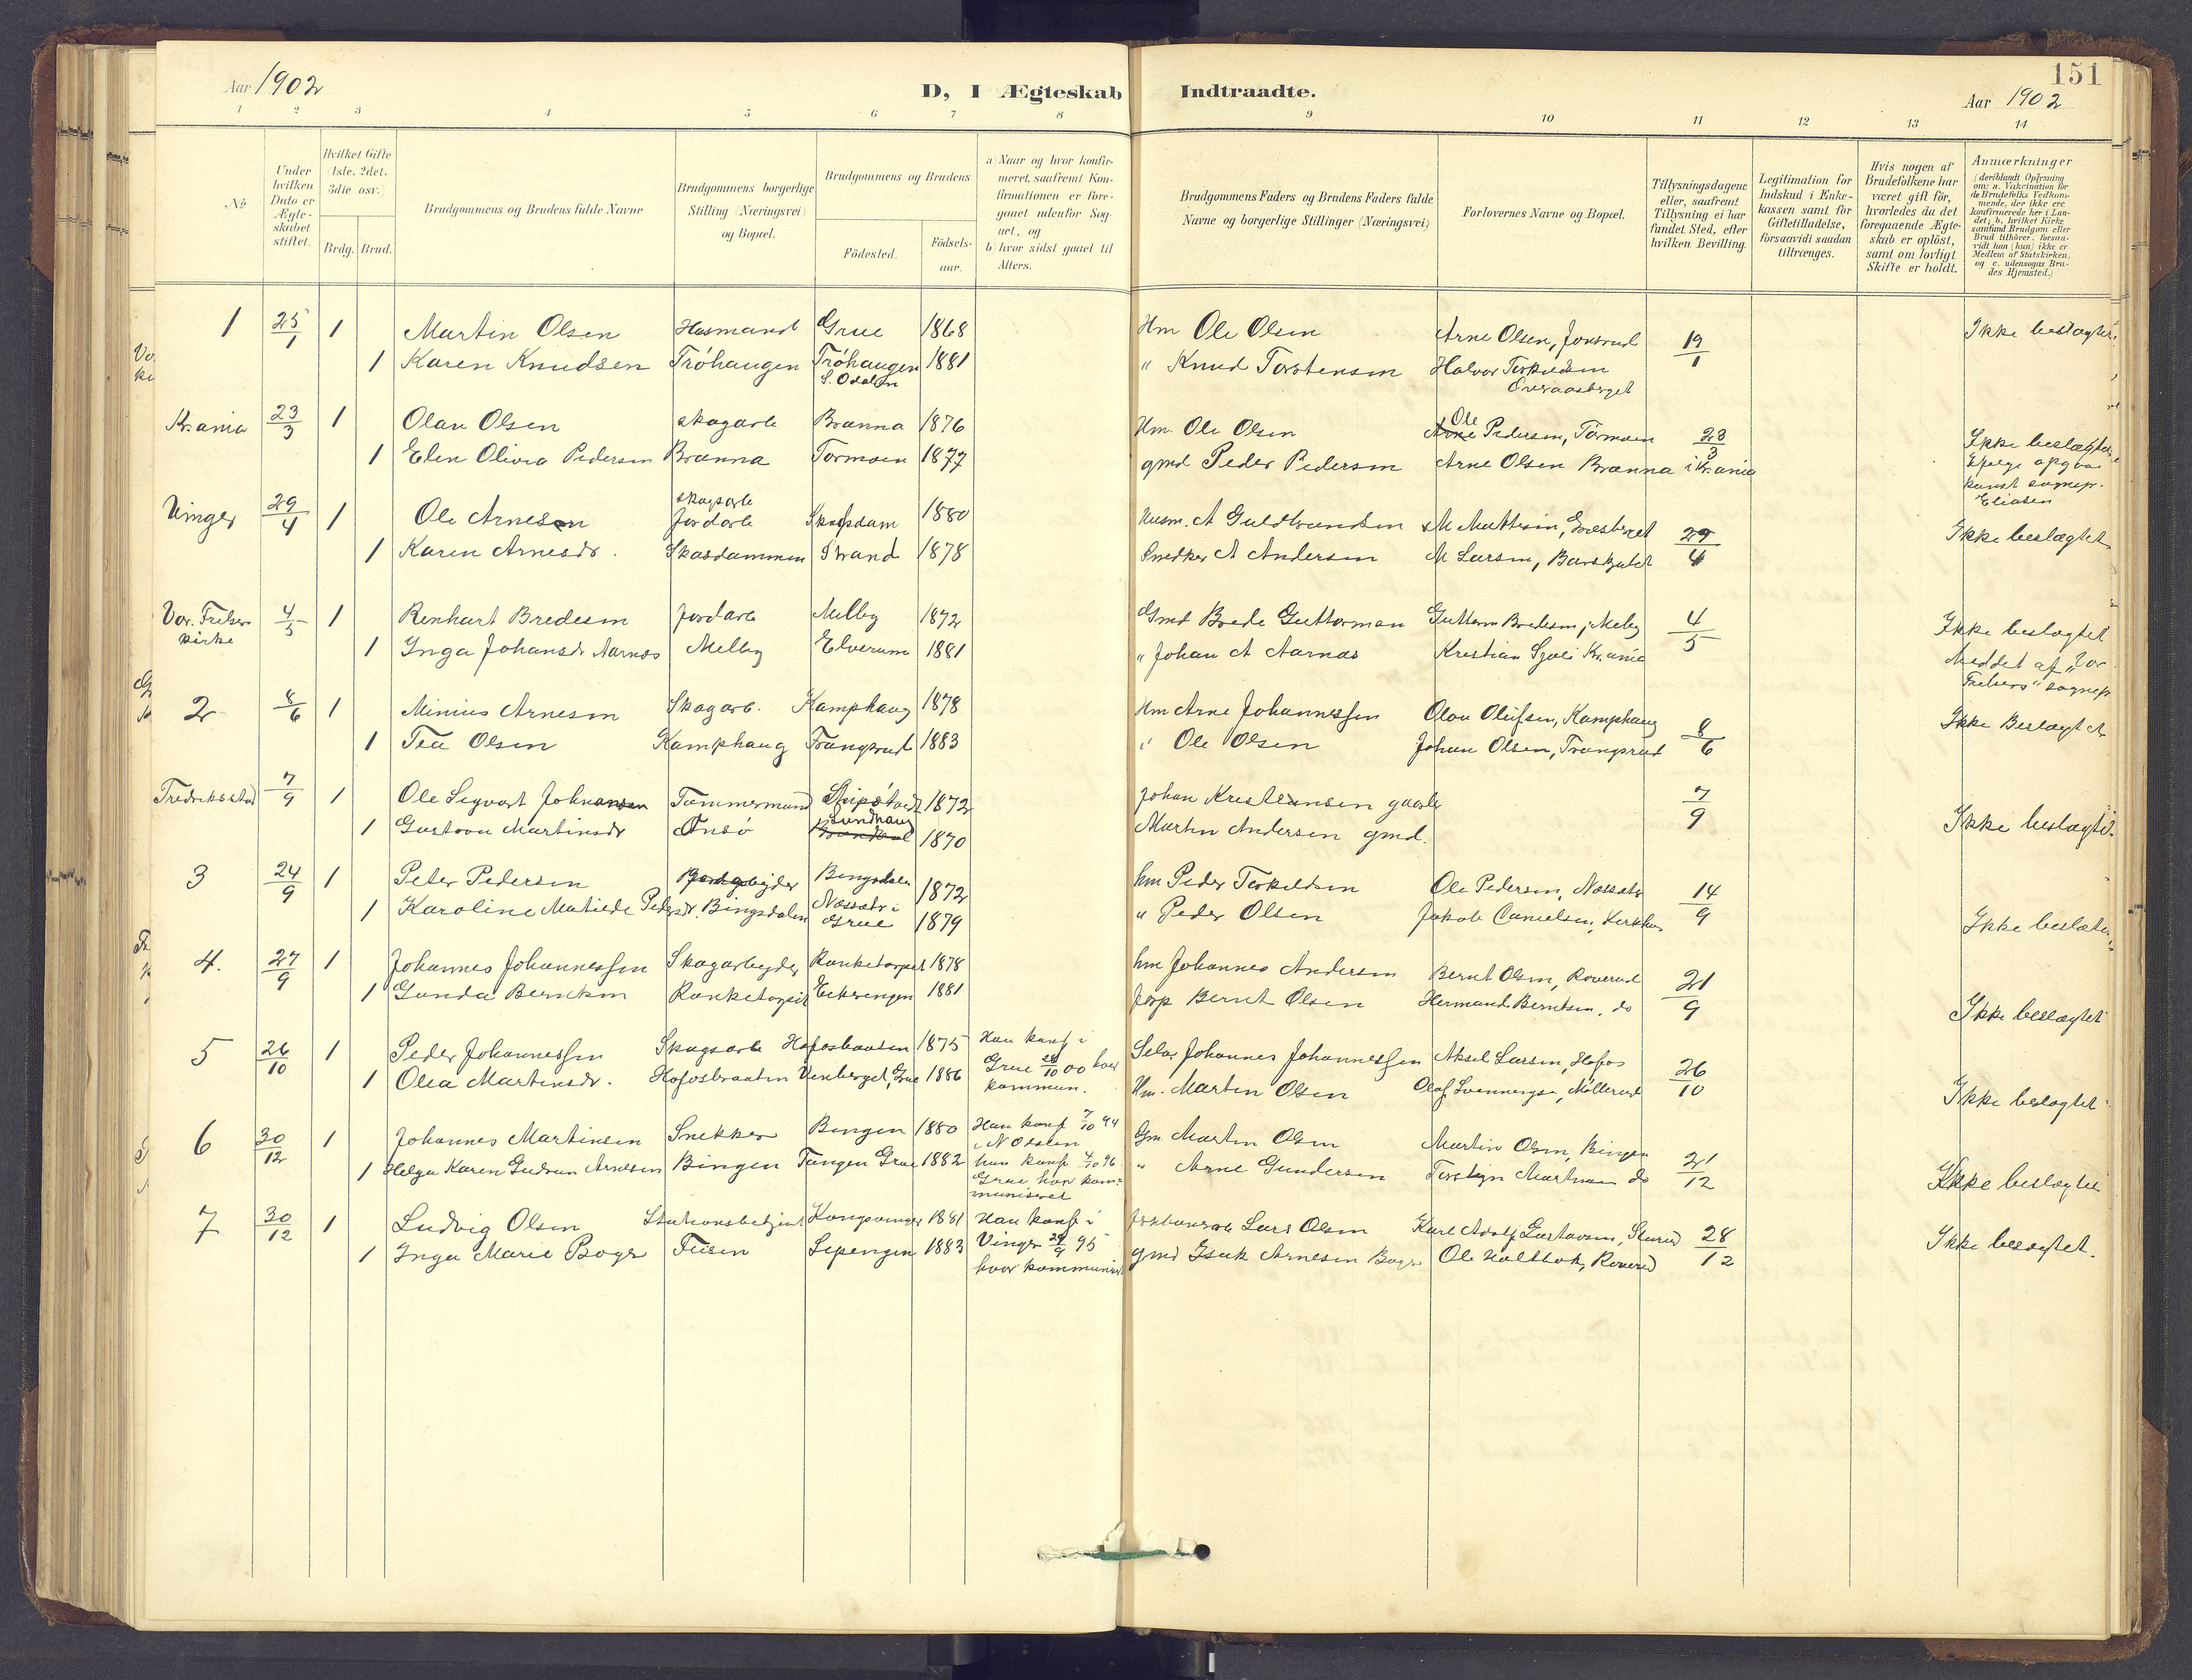 Aar 1902
D, I Ægteskab Indtraadte.
151
Aar 1902
1 2 3 4 5 6 7 8 9 10 11 12 13 14
No
Under hvilken Dato er Ægteskabet stiftet.
Hvilket Gifte (1ste, 2det, 3die osv.)
Brdg. Brud.
Brudgommens og Brudens fulde Navne
Brudgommens borgerlige Stilling (Næringsvei) og Bopæl.
Brudgommens og Brudens
Födested.
Födsels-aar.
a) Naar og hvor konfirmeret, saafremt Konfirmationen er foregaaet udenfor Sognet, og
b) hvor sidst gaaet til Alters.
Brudgommens Faders og Brudens Faders fulde Navne og borgerlige Stillinger (Næringsvei)
Forlovernes Navne og Bopæl.
Tillysningsdagene eller, saafremt Tillysning ei har fundet Sted, efter hvilken Bevilling.
Legitimation for Indskud i Enkekassen samt for Giftetilladelse, forsaavidt saadan tiltrænges.
Hvis nogen af Brudefolkene har været gift før, hvorledes da det foregaaende Ægteskab er oplöst, samt om lovligt Skifte er holdt.
Anmærkninger
(deriblandt Oplysning om: a. Vakcination for de Brudefolks Vedkommende, der ikke ere konfirmerede her i Landet; b. hvilket Kirkesamfund Brudgom eller Brud tilhörer, forsaavidt han (hun) ikke er Medlem af Statskirken, og c. udensogns Brudes Hjemsted.)
1 25/1 1 Martin Olsen Husmand Grue 1868 Hm Ole Olsen Arne Olsen, 19/1 Ikke beslægtet.
1 Karen Knudsen Tröhaugen Tröhaugen S. Odalen 1881 " Knud Torstensen Halvor Torkildsen Overaasberget
Kr.ania 23/3 1 Olau Olsen skogarb Brænna 1876 Hm. Ole Olsen Ole Pedersen, Tormoen 23/3 Ikke beslægtet
1 Elen Olivia Pedersen Brænna Tormoen 1877 gmd Peder Pedersen Arne Olsen Brænna i Kr.ania
sognepr. Eliasen
Vinger 29/4 1 Ole Arnesen skogsarb jordarb 1880 Husm. A Guldbrandsen M Mathesin, 29/4 Ikke beslægtet
1 Karen Arnesdr. Skasdammen Strand 1878 Snedker A Andersen M Larsen,
Vor. Frelsers kirke 4/5 1 Renhart Bredesen jordarb Melby 1872 Gmd Brede Guttormsen Guttorm Bredesen, Meby 4/5 Ikke beslægtet
1 Inga Johansdr Aarnæs Melby Elverum 1881 " Johan A Aarnæs Kristian Kr.ania Meddet af "Vor Frelsers" sognepr
2 8/6 1 Minius Arnesen Skogarb. Kamphaug 1878 Hm Arne Johannessen Olau Olufsen, Kamphaug 8/6 Ikke Beslægtet
1 Tea Olsen Kamphaug Trangsrud 1883 " Ole Olsen Johan Olsen, Trangsrud
Fredriksstad 7/9 1 Ole Sigvart Johansen Tømmermand 1872 Johan Kristiansen gaarb 7/9 Ikke beslægtet.
1 Gustava Martinsdr Onsö Sundhaug 1870 Martin Andersen gmd.
3 24/9 1 Peter Pedersen 1872 hm Peder Torkildsen Ole Pedersen, Næssætr 14/9 Ikke beslæt
1 Karoline Matilde Pedersdr. Bingsdalen Næssætr i Grue 1879 " Peder Olsen Jakob Danielsen,
4. 27/9 1 Johannes Johannessen Skogarbeyder Ranketorpet 1878 hm Johannes Andersen Bernt Olsen, Roverud 21/9 Ikke beslægtet
1 Gunda Berntsen Ranketorpet 1881 Bernt Olsen Hermand Berntsen, do
5 26/10 1 Peder Johannessen Skogsarb Hofosbraaten 1875 Han konf i Selv. Johannes Johannessen Aksel Larsen, Hofos 26/10 Ikke beslægtet
1 Olea Martinsdr. Hofosbraaten Grue 1886 Grue 28/10 00 hvor kommun. Hm. Martin Olsen Olaf Svenneryn, Möllerud
6 30/12 1 Johannes Martinsen Snekker Bingen 1880 Han konf 7/10 94 i N Odalen Gm Martin Olsen Martin Olsen, Bingen 21/12 Ikke beslægtet
1 Helga Karen Gudrun Arnesen Bingen Tangen Grue 1882 hun konf 4/10 96 Grue hvor kommuniseret " Arne Gundersen Torstejn Martinsen do
7 30/12 1 Ludvig Olsen Stationsbetjent Kongsvinger 1881 Han konf i Lars Olsen Karl Adolf Gustavsen, 28/12 Ikke beslægtet.
1 Inga Marie Boger 1883 Vinger 29/9 95 hvor kommunis gmd Isak Arnesen Boger Ole Holtbak, Roverud